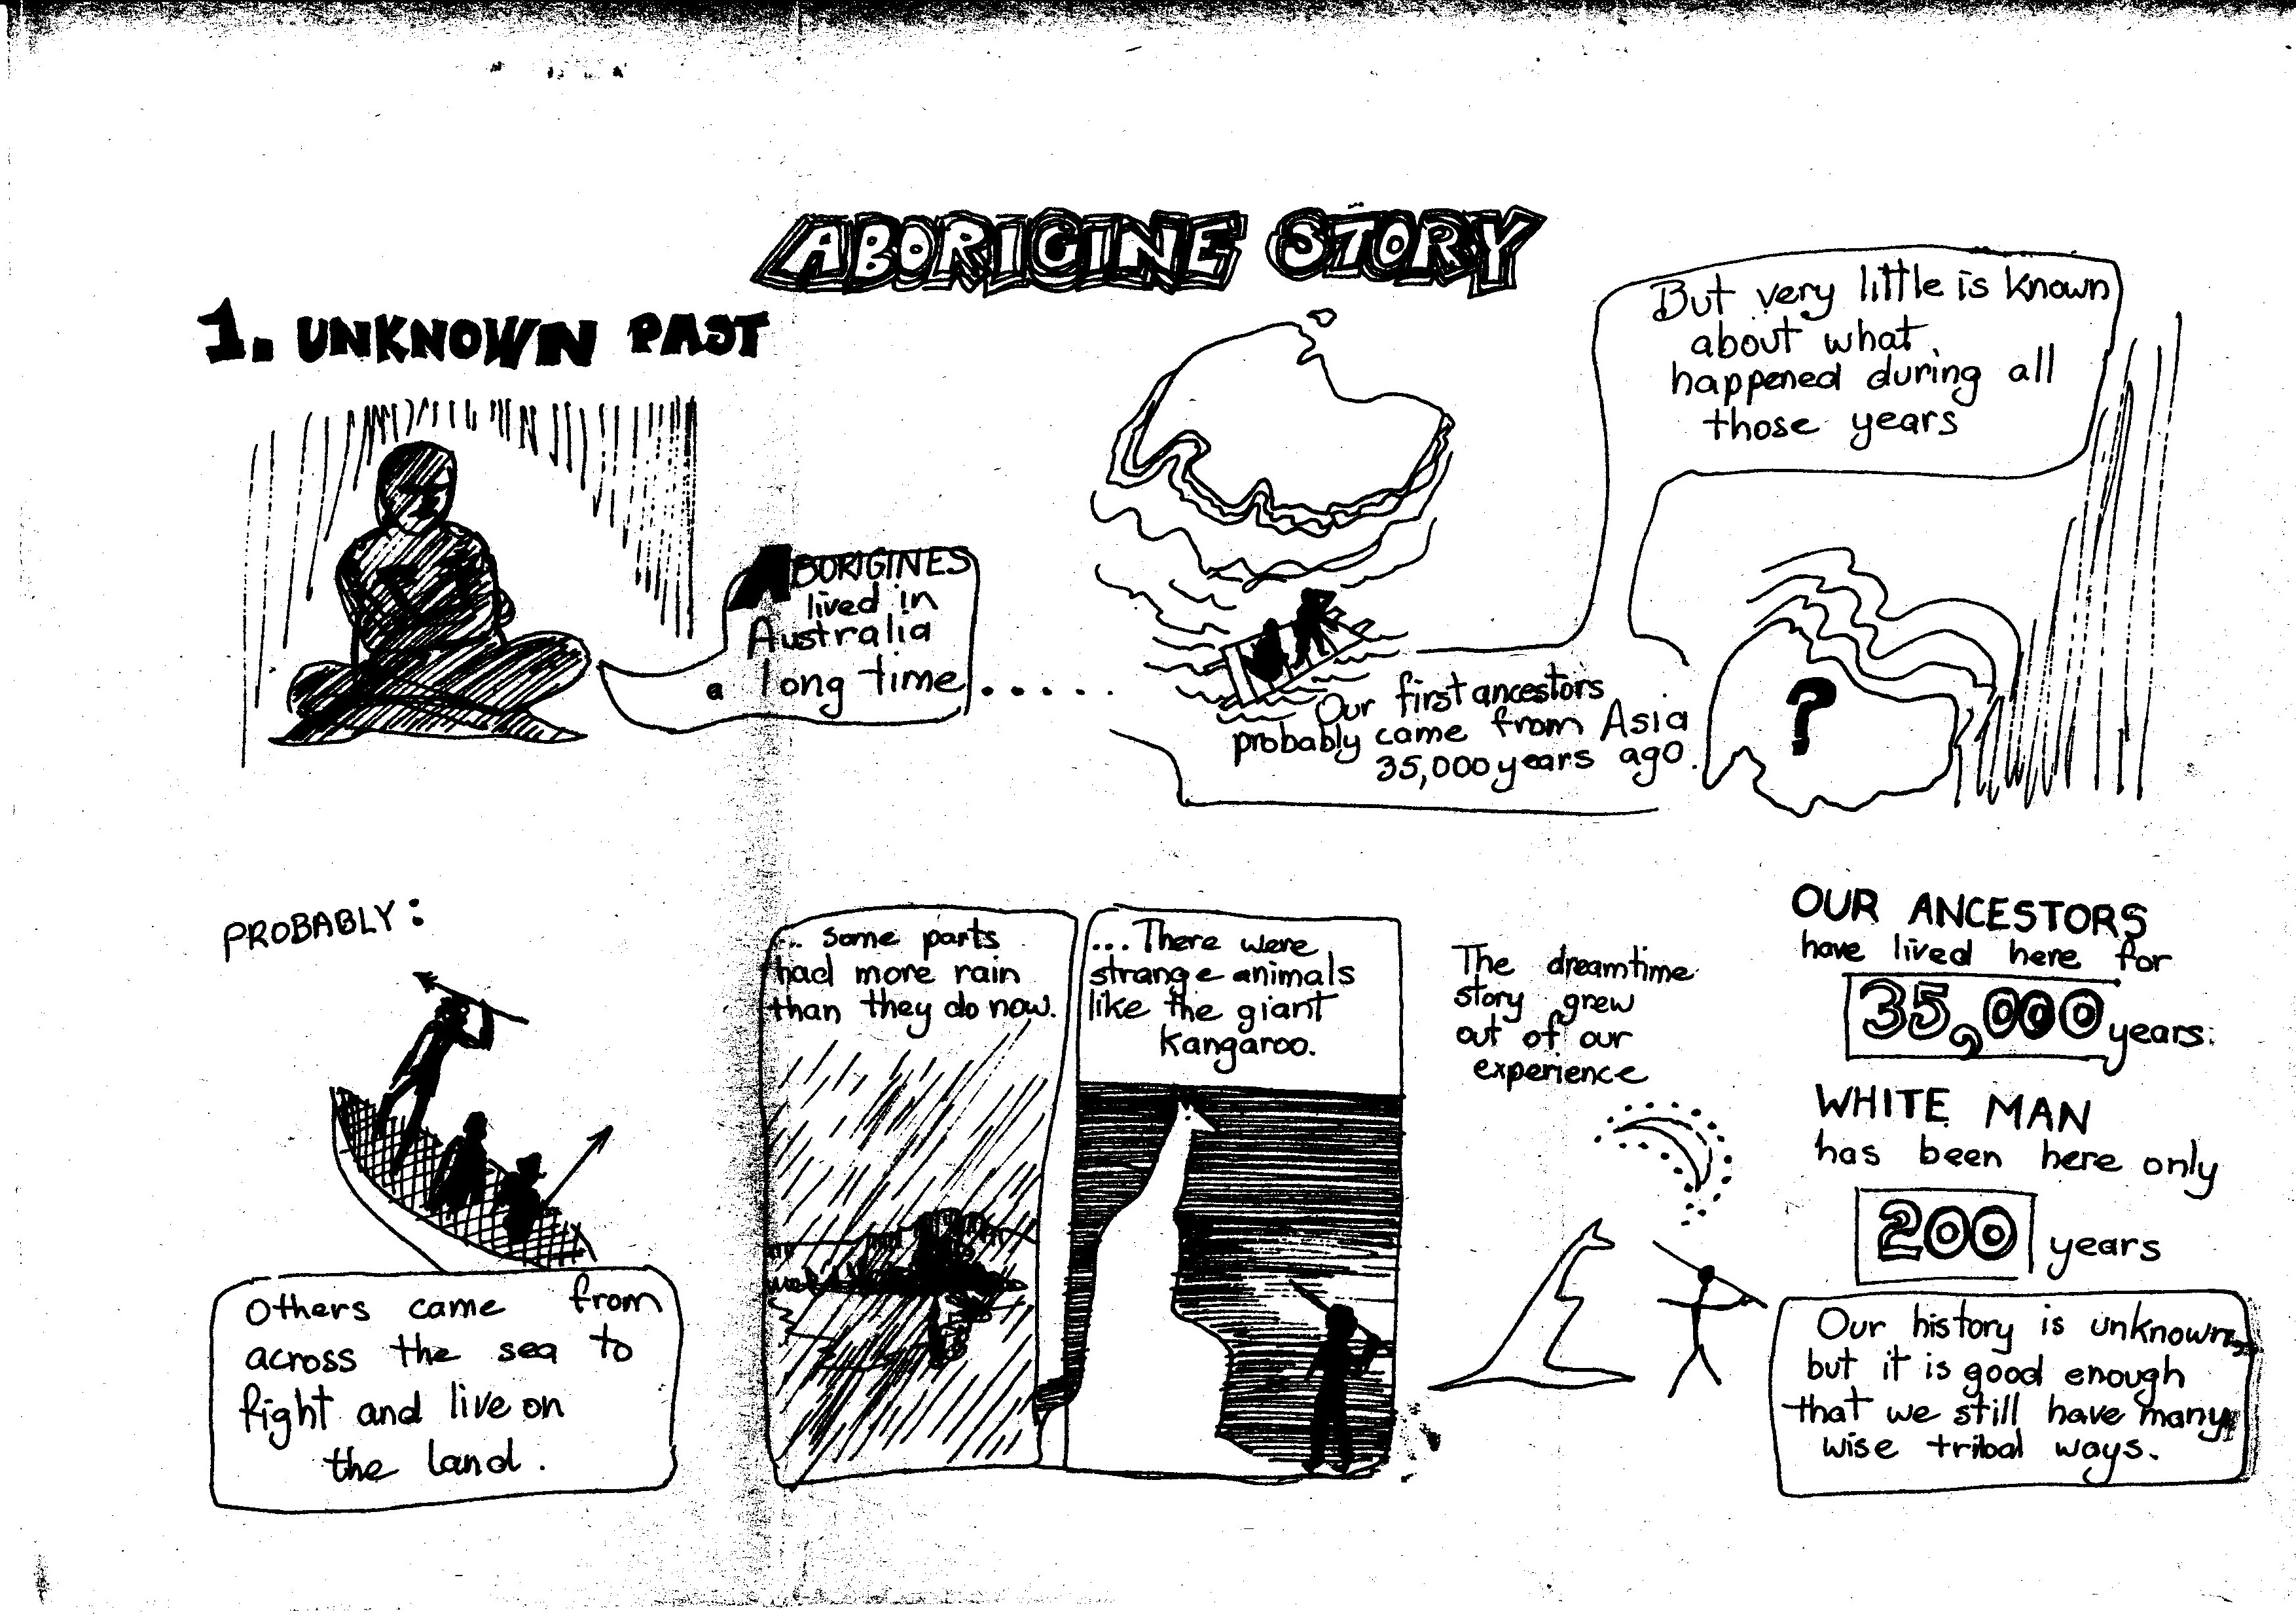 ABORIGINE STORY
1. UNKNOWN PAST
ABORIGINES
lived in
Australia
a long time.....
Our first ancestors
probably came from Asia
35,000 years ago.
But very little is known
about what
happened during all
those years
?
PROBABLY:
Others came from
across the sea to
fight and live on
the land.
... some parts
had more rain
than they do now.
...There were
strange animals
like the giant
kangaroo.
The dreamtime
story grew
out of our
experience
OUR ANCESTORS
have lived here for
35,000 years.
WHITE MAN
has been here only
200 years
Our history is unknown
but it is good enough
that we still have many
wise tribal ways.